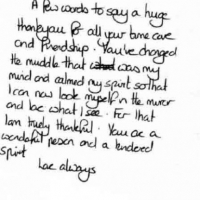 A few words to say a huge
thankyou for all your time care
and friendship. You've changed
the muddle that was my
mind and calmed my spirit so that
I can now look myself in the mirror
and love what I see. For that
I am truly thankful. You are a
wonderful person and a kindered
Spirit
Love always